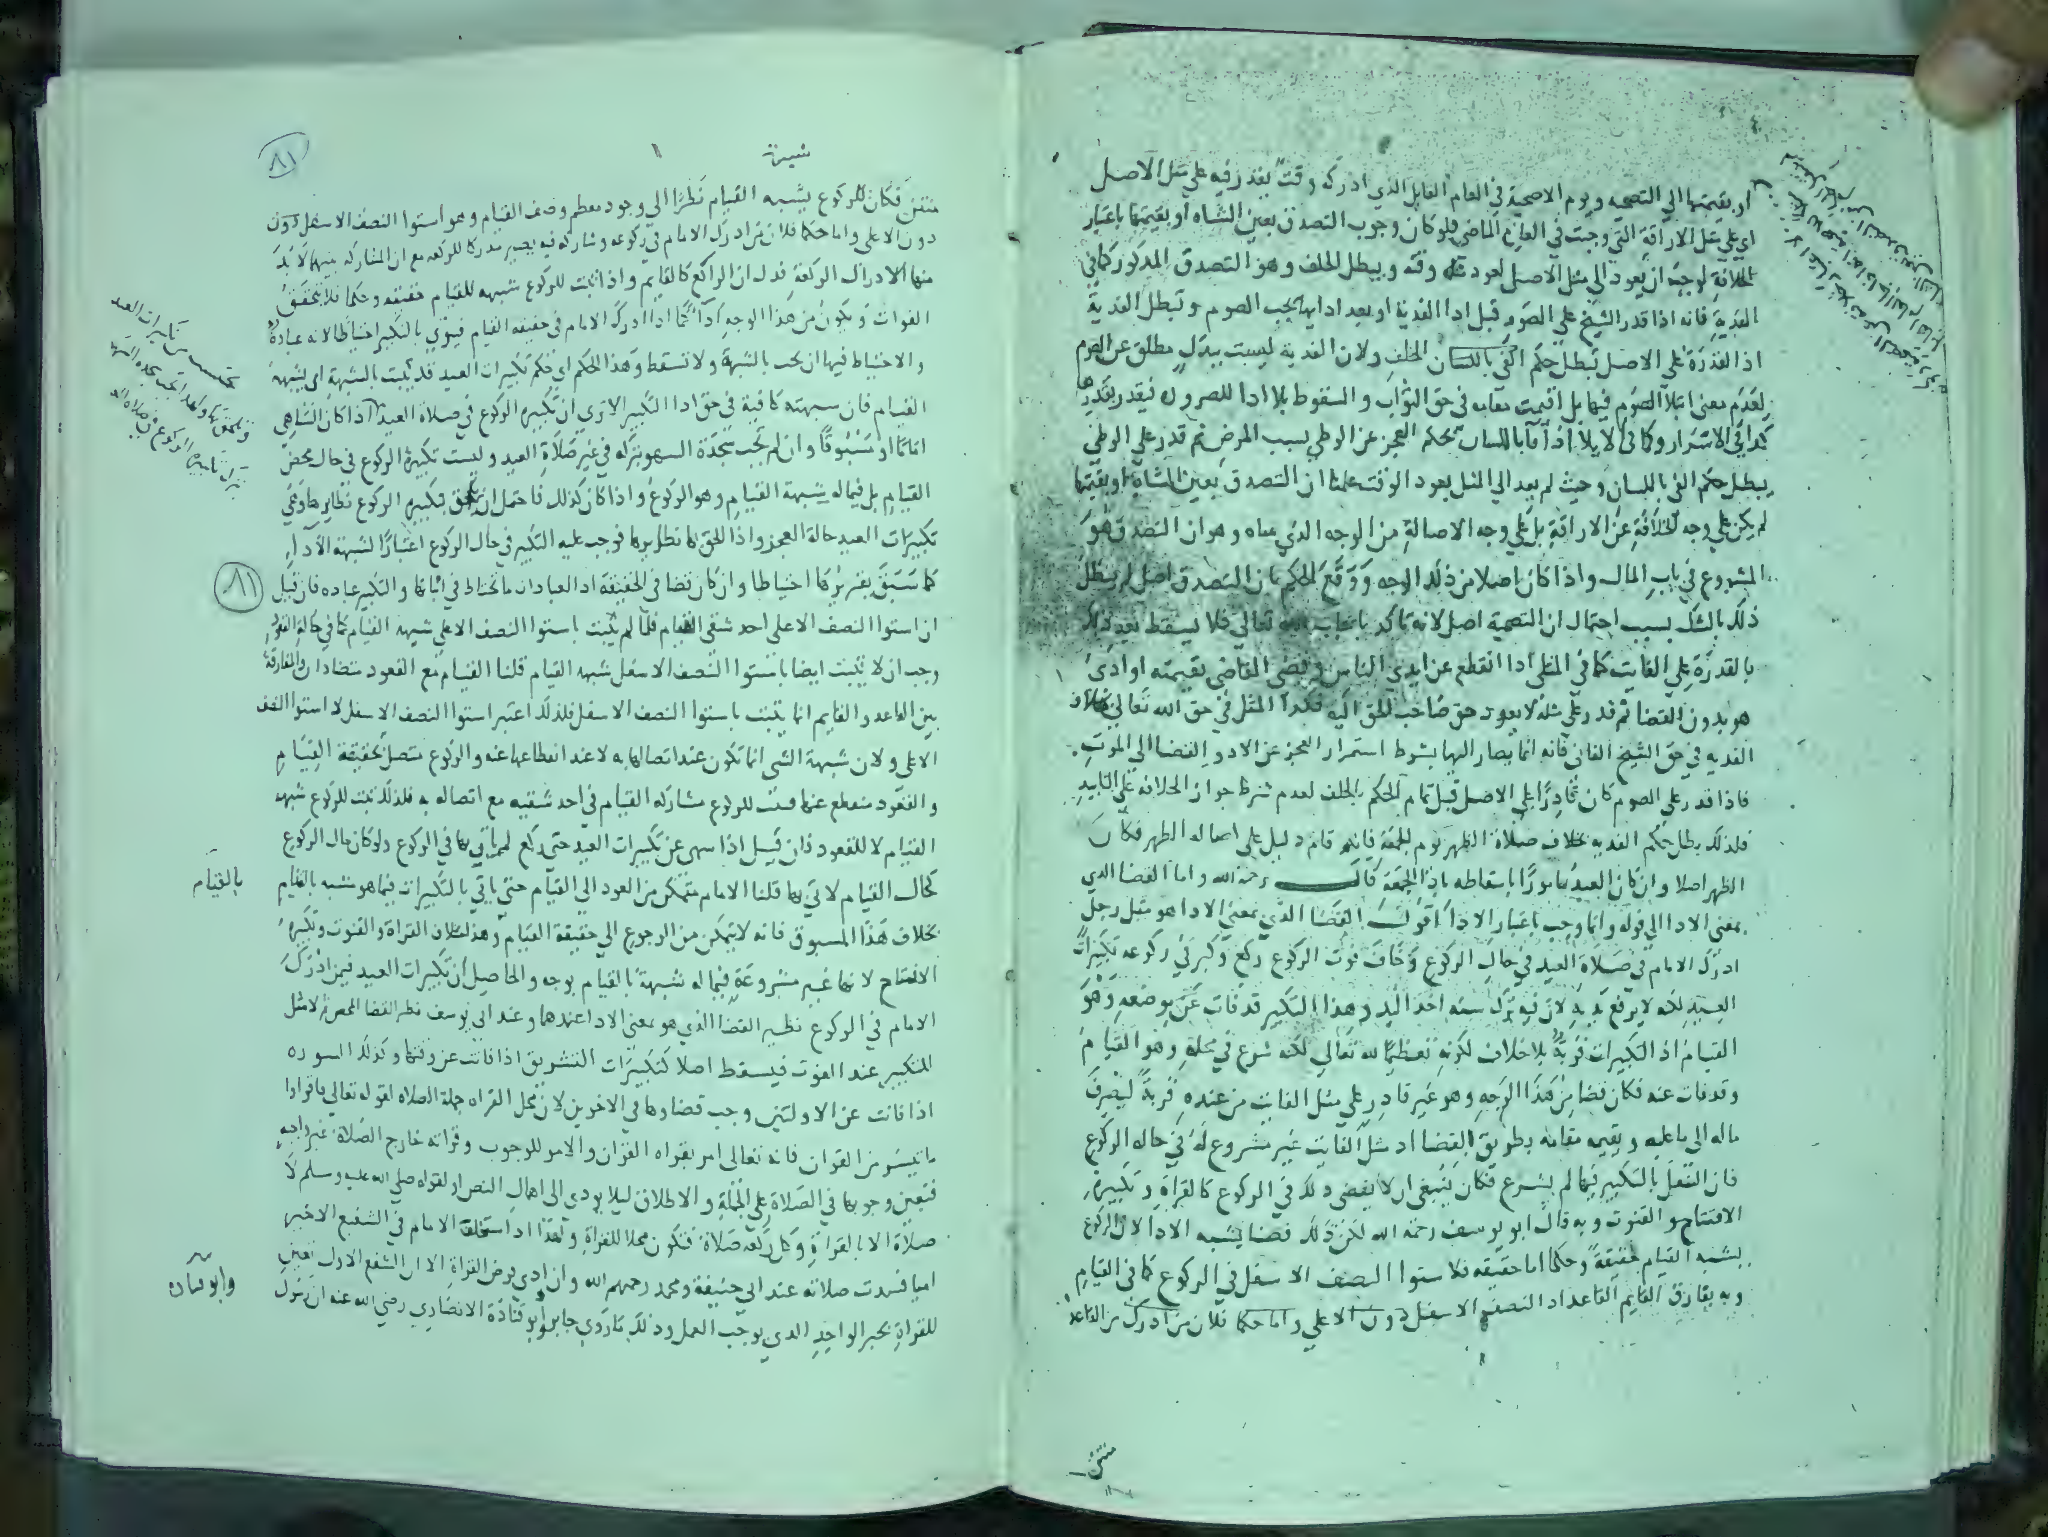 او بقيمتها الي التضحيه ويوم الاضحية في العام القابل الذي ادركه وقت يقدر فيه علي مثل الاصل
اي علي مثل الاراقة التي وجبت في العام الماضي فلو كان وجوب التصدق بعين الشاه او بقيمتها باعتبار
الخلافة لوجب ان يعود الي مثل الاصل لعود وقته ويبطل الخلف وهو التصدق المذكور كما في
الفدية فانه اذا قدر الشيخ علي الصوم قبل ادا الفدية او بعد ادايها يجب الصوم وتبطل الفدية
اذ القدرة علي الاصل تبطل حكم الخلف ولان الفدية ليست ببدل مطلق عن الصوم
لعدم معني ابتلا الصوم فيها بل اقيمت مقامه في حق الثواب والسقوط بلا ادا للضرورة فيقدر بقدرها
كذا في الاسرار وكما في الايلا اذا فا باللسان بحكم العجز عن الوطي بسبب المرض ثم قدر علي الوطي
يبطل حكم الفي باللسان وحيث لم يعد الي المثل بعود الوقت علمنا ان التصدق بعين الشاة او بقيمتها
لم يكن علي وجه الخلافة عن الاراقة بل علي وجه الاصالة من الوجه الذي بيناه وهو ان التصدق هو
المشروع في باب المال واذا كان اصلا من ذلك الوجه ووقع الحكم بان التصدق اصل لم يبطل
ذلك بالشك بسبب احتمال ان التضحية اصل لانه تاكد بايجاب الله تعالي فلا يسقط بعد ذلك
بالقدرة علي الفايت كما في المثلي اذا انقطع عن ايدي الناس وقضي القاضي بقيمته او ادي
هو بدون القضا ثم قدر علي مثله لا يعود حق صاحب الحق اليه فكذا المثل في حق الله تعالي بخلاف
الفديه في حق الشيخ الفاني فانه انما يصار اليها بشرط استمرار العجز عن الادا والقضا الي الموت
فاذا قدر علي الصوم كان قادرا علي الاصل قبل تمام الحكم بالخلف لعدم شرط جواز الخلافة علي التابيد
فلذلك بطل حكم الفديه بخلاف صلاة الظهر يوم الجمعة فانه قام دليل علي اصالة الظهر فكان
الظهر اصلا وان كان العبد مامورا باسقاطه باداء الجمعة قال رحمه الله واما القضا الذي
بمعني الادا الي قوله وانما وجب باعتبار الادا اقول القضا الذي بمعني الادا هو مثل رجل
ادرك الامام في صلاة العيد في حال الركوع وخاف فوت الركوع ركع وكبر في ركوعه تكبيرات
العيد لكنه لا يرفع يديه لان فيه ترك سنه اخذ اليد وهذا التكبير قد فات عن موضعه وهو
القيام اذ التكبيرات قربة بلا خلاف لكونه تعظيما لله تعالي لكنه شرع في محله وهو القيام
وقد فات عنه فكان قضا من هذا الوجه وهو غير قادر علي مثل الفايت من عنده قربة ليصرف
ماله الي ما عليه ويقيمه مقامه بطريق القضا اذ مثل الفايت غير مشروع له في حاله الركوع
فان النفل بالتكبير فيها لم يشرع فكان ينبغي ان لا يقضي ذلك في الركوع كالقراة وتكبيرة
الافتتاح والقنوت وبه قال ابو يوسف رحمه الله لكن ذلك قضا يشبه الادا لان الركوع
يشبه القيام حقيقة وحكما اما حقيقه فلاستوا النصف الاسفل في الركوع كما في القيام
وبه يفارق القايم القاعد اذ النصف الاسفل دون الاعلي واما حكما فلان من ادرك من القاعد
منتقن
شبيهة
٨١
منتقن فكان للركوع يشبه القيام نظرا الي وجود معظم وصف القيام وهو استوا النصف الاسفل دون
دون الاعلي واما حكما فلان من ادرك الامام في ركوعه وشاركه فيه يصير مدركا للركعه مع ان المشاركه بينهما لا بد
منها لادراك الركعة فدل ان الراكع كالقايم واذا ثبت للركوع شبهه للقيام حقيقه وحكما فلا يتحقق
الفوات ويكون من هذا الوجه ادا كما اذا ادرك الامام في حقيقه القيام فيوتي بالتكبير احتياطا لانه عبادة
والاحتياط فيها ان يجب بالشبهة ولا تسقط وهذا الحكم اي حكم تكبيرات العيد قد يثبت بالشبهة اي بشبهة
القيام فان شبهته كافية في حق ادا التكبير الا تري ان تكبيرة الركوع في صلاة العيد اذا كان الساهي
اماما او مسبوقا وان لم تجب سجدة السهو بتركه في غير صلاة العيد وليست تكبيرة الركوع في حال محض
القيام بل فيما له شبهة القيام وهو الركوع واذا كان كذلك فاحتمل ان يلحق بتكبيرة الركوع نظايرها وهي
تكبيرات العيد حالة العجز واذا الحق بها نظايرها فوجب عليه التكبير في حال الركوع اعتبارا لشبهة الادا
كما سبق تقريرها احتياطا وان كان قضا في الحقيقة اذ العبادات ما تحتاط في اثباتها والتكبير عباده فان قيل
٨١
ان استوا النصف الاعلي احد شقي القيام فلما لم يثبت باستوا النصف الاعلي شبهة القيام كما في حالة القعود
وجب ان لا يثبت ايضا باستوا النصف الاسفل شبهه القيام قلنا القيام مع القعود متضادان والمفارقة
بين القاعد والقايم انما يثبت باستوا النصف الاسفل فلذلك اعتبر استوا النصف الاسفل لا استوا النصف
الاعلي ولان شبهة الشي انما تكون عند اتصالها به لا عند انقطاعها عنه والركوع متصل بحقيقة القيام
والقعود منقطع عنها فثبت للركوع مشاركة القيام في احد شقيه مع اتصاله به فلذلك ثبت للركوع شبهه
القيام لا للقعود فان قيل اذا سهي عن تكبيرات العيد حتي ركع لم ياتي بها في الركوع ولو كان حال الركوع
كحال القيام لاتي بها قلنا الامام متمكن من العود الي القيام حتي ياتي بالتكبيرات فيما هو مشبه بالقيام
بالقيام
بخلاف هذا المسبوق فانه لا يتمكن من الرجوع الي حقيقة القيام وهذا بخلاف القراة والقنوت وتكبيرة
الافتتاح لانها غير مشروعة فيما له شبهة بالقيام بوجه والحاصل ان تكبيرات العيد فيمن ادرك
الامام في الركوع نظير القضا الذي هو بمعني الادا عندهما وعند ابي يوسف نظير القضا المحض لا مثل
التكبير عند الفوت فيسقط اصلا كتكبيرات التشريق اذا فاتت عن وقتها وكذلك السوره
اذا فاتت عن الاولتين وجب قضاوها في الاخريين لان محل القراة جملة الصلاه لقوله تعالي فاقراوا
ما تيسر من القران فانه تعالي امر بقراة القران والامر للوجوب وقراته خارج الصلاة غير واجبه
فتعين وجوبها في الصلاة علي الجملة والاطلاق ليلا يودي الي اهمال النص ولقوله صلي الله عليه وسلم لا
صلاة الا بالقراة وكل ركعة صلاة فتكون محلا للقراة ولهذا اذا استخلف الامام في الشفع الاخير
اميا فسدت صلاته عند ابي حنيفة ومحمد رحمهم الله وان ادي فرض القراة الا ان الشفع الاول تعين
للقراة بخبر الواحد الذي يوجب العمل وذلك ما روي جابر وابو قتادة الانصاري رضي الله عنه ان رسول
وابو قتادة